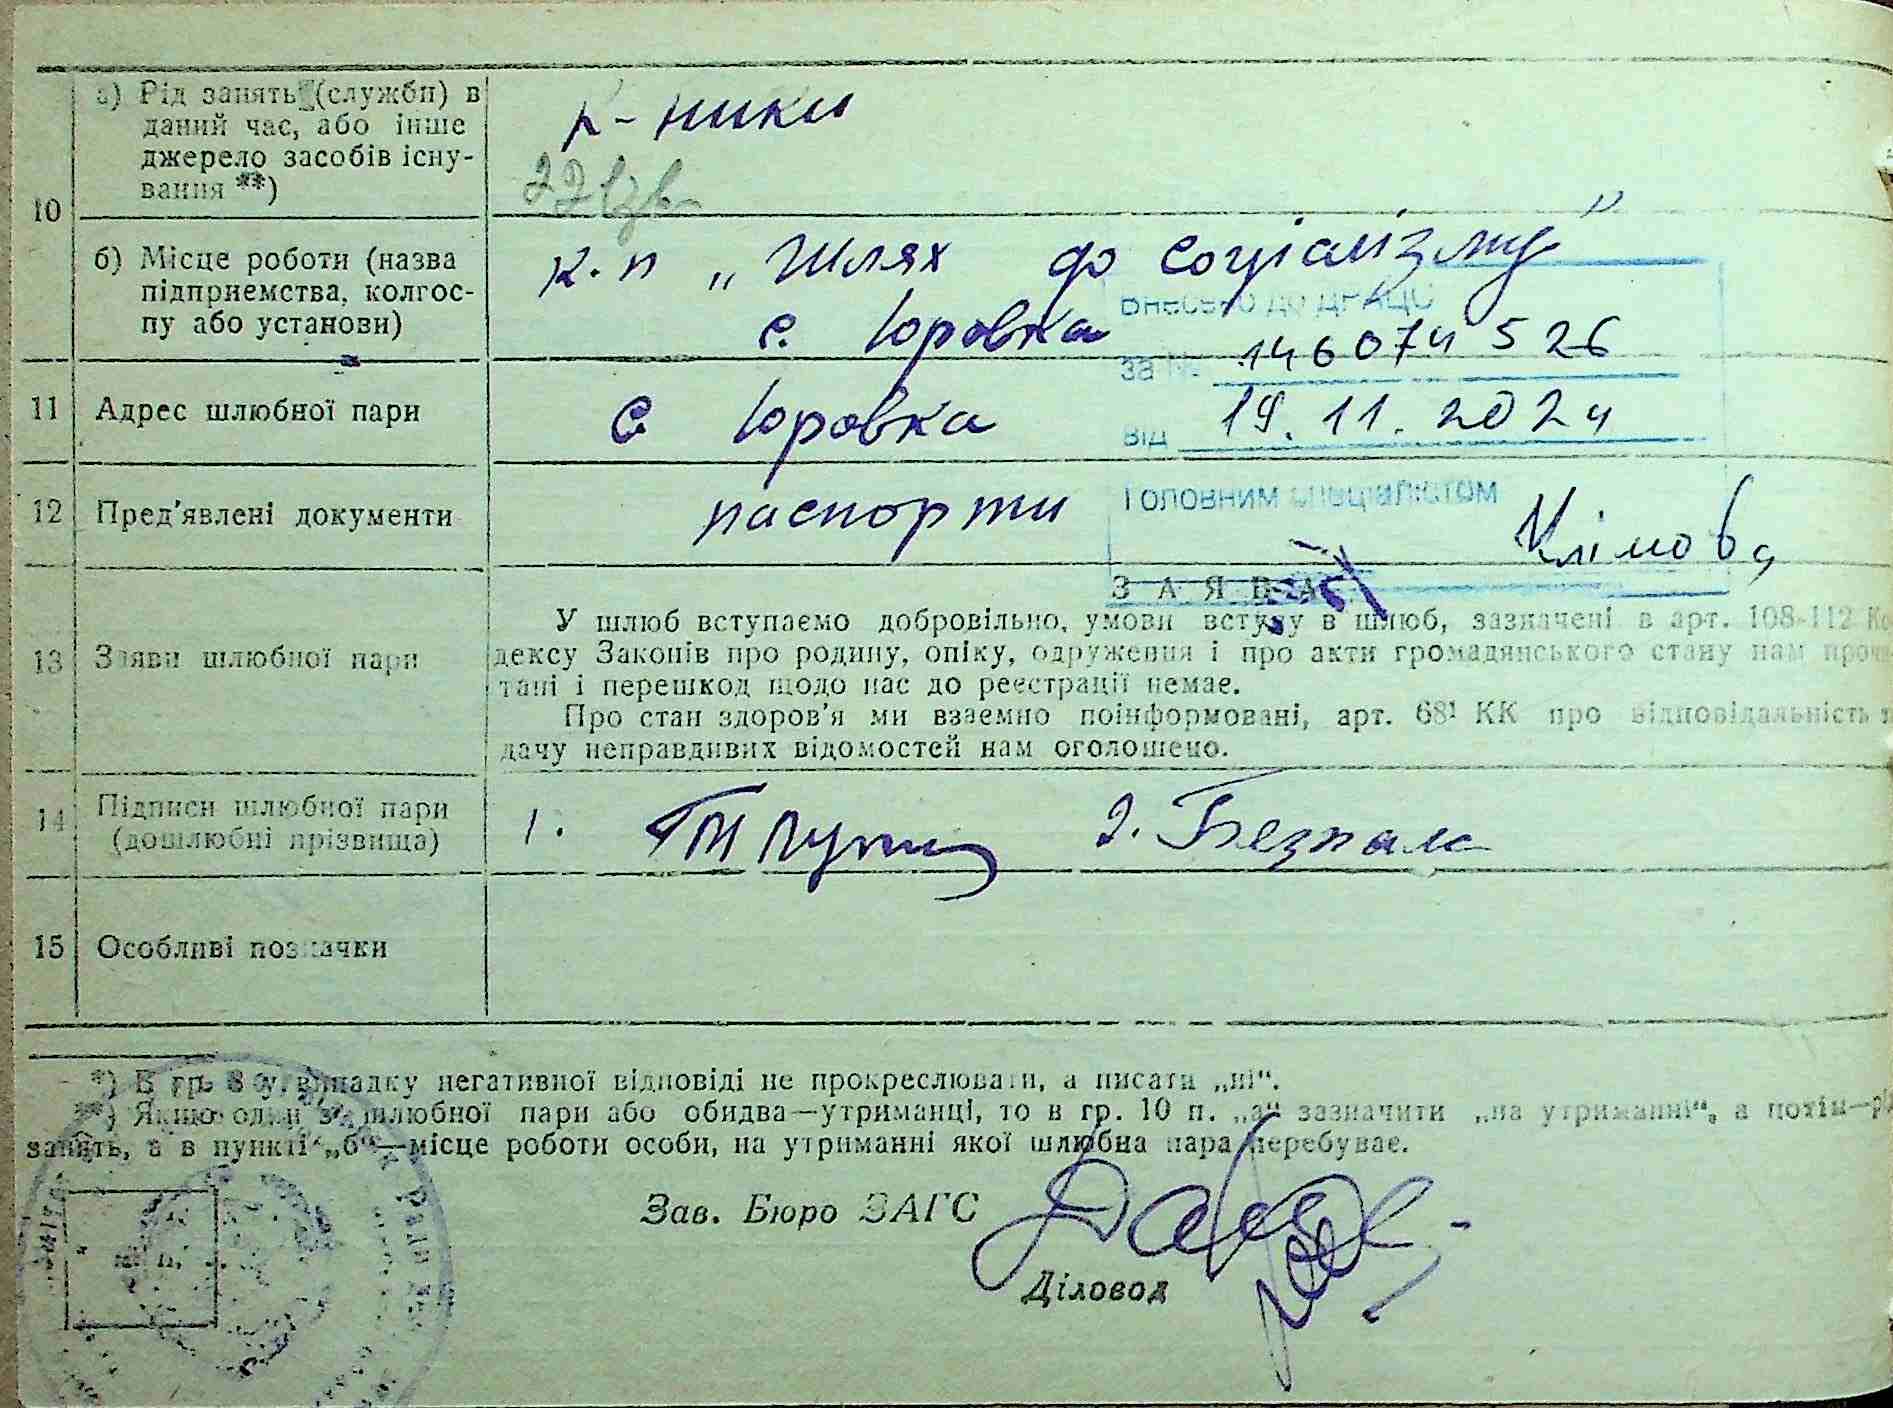 10
а) Рід занять (служби) в
даний час, або інше
джерело засобів існу-
вання **)
к-ники
22
б) Місце роботи (назва
підприємства, колгос-
пу або установи)
к.п „Шлях до соціалізму"
с. Юровка
Внесено до ДРАЦС
за № 146074526
від 19.11.2024
Головним спеціалістом
Клімова
11 Адрес шлюбної пари
с Юровка
12 Пред'явлені документи
паспорти
13 Заяви шлюбної пари
ЗАЯВА
У шлюб вступаємо добровільно, умови вступу в шлюб, зазначені в арт. 108-112 Ко
дексу Законів про родину, опіку, одруження і про акти громадянського стану нам проч
тані і перешкод щодо нас до реєстрації немає.
Про стан здоров'я ми взаємно поінформовані, арт. 68¹ КК про відповідальність
дачу неправдивих відомостей нам оголошено.
14 Підписи шлюбної пари
(дошлюбні прізвища)
1.
2. Безпала
15 Особливі позначки
*) В гр. 8 у випадку негативної відповіді не прокреслювати, а писати „ні".
**) Якщо один з шлюбної пари або обидва—утриманці, то в гр. 10 п. „а" зазначити „на утриманні", а потім—р
занять, а в пункті „б"—місце роботи особи, на утриманні якої шлюбна пара перебуває.
Зав. Бюро ЗАГС
Діловод
м. п.